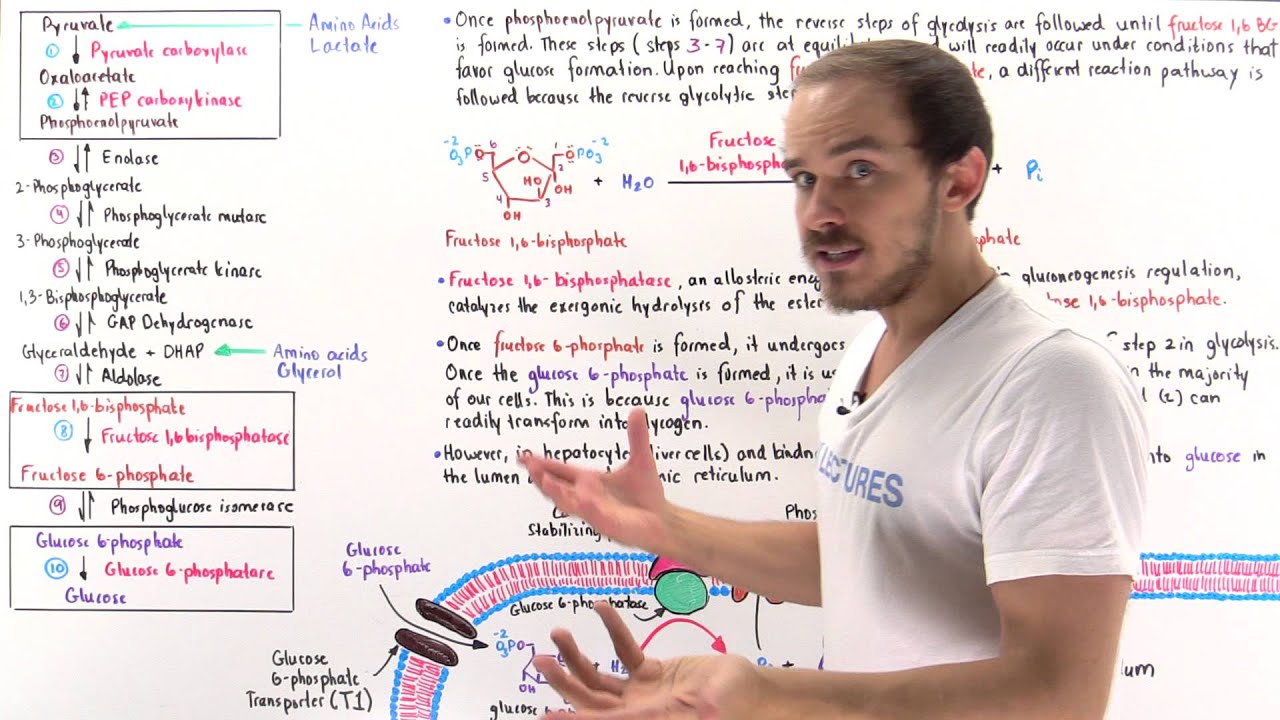 Pyruvate
Amino Acids
Lactate
1 Pyruvate carboxylase
Oxaloacetate
2 PEP carboxykinase
Phosphoenolpyruvate
3 Enolase
2-Phosphoglycerate
4 Phosphoglycerate mutase
3-Phosphoglycerate
5 Phosphoglycerate kinase
1,3-Bisphosphoglycerate
6 GAP Dehydrogenase
Glyceraldehyde + DHAP
Amino acids
Glycerol
7 Aldolase
Fructose 1,6-bisphosphate
8 Fructose 1,6 bisphosphatase
Fructose 6-phosphate
9 Phosphoglucose isomerase
Glucose 6-phosphate
10 Glucose 6-phosphatase
Glucose
• Once phosphoenolpyruvate is formed, the reverse steps of glycolysis are followed until fructose 1,6 BG
is formed. These steps (steps 3-7) are at will readily occur under conditions that
favor glucose formation. Upon reaching , a different reaction pathway is
followed because the reverse glycolytic
-2 O3PO 6 O 1 OPO3 -2
5 HO 2
OH
4 3
OH
+ H2O
Fructose
1,6-bisphosph
+ Pi
Fructose 1,6-bisphosphate
phate
• Fructose 1,6-bisphosphatase, an allosteric in gluconeogenesis regulation,
catalyzes the exergonic hydrolysis of the ester 1,6-bisphosphate.
• Once fructose 6-phosphate is formed, it undergoes step 2 in glycolysis.
Once the glucose 6-phosphate is formed, it is in the majority
of our cells. This is because glucose 6-phosph (2) can
readily transform into
• However, in (liver cells) and into glucose in
the lumen reticulum.
Stabilizing
Phos
Glucose
6-phosphate
Glucose 6-phosphatase
Glucose
6-phosphate
Transporter (T1)
-2 O3PO
OH
+ H2
glucose
+
LECTURES